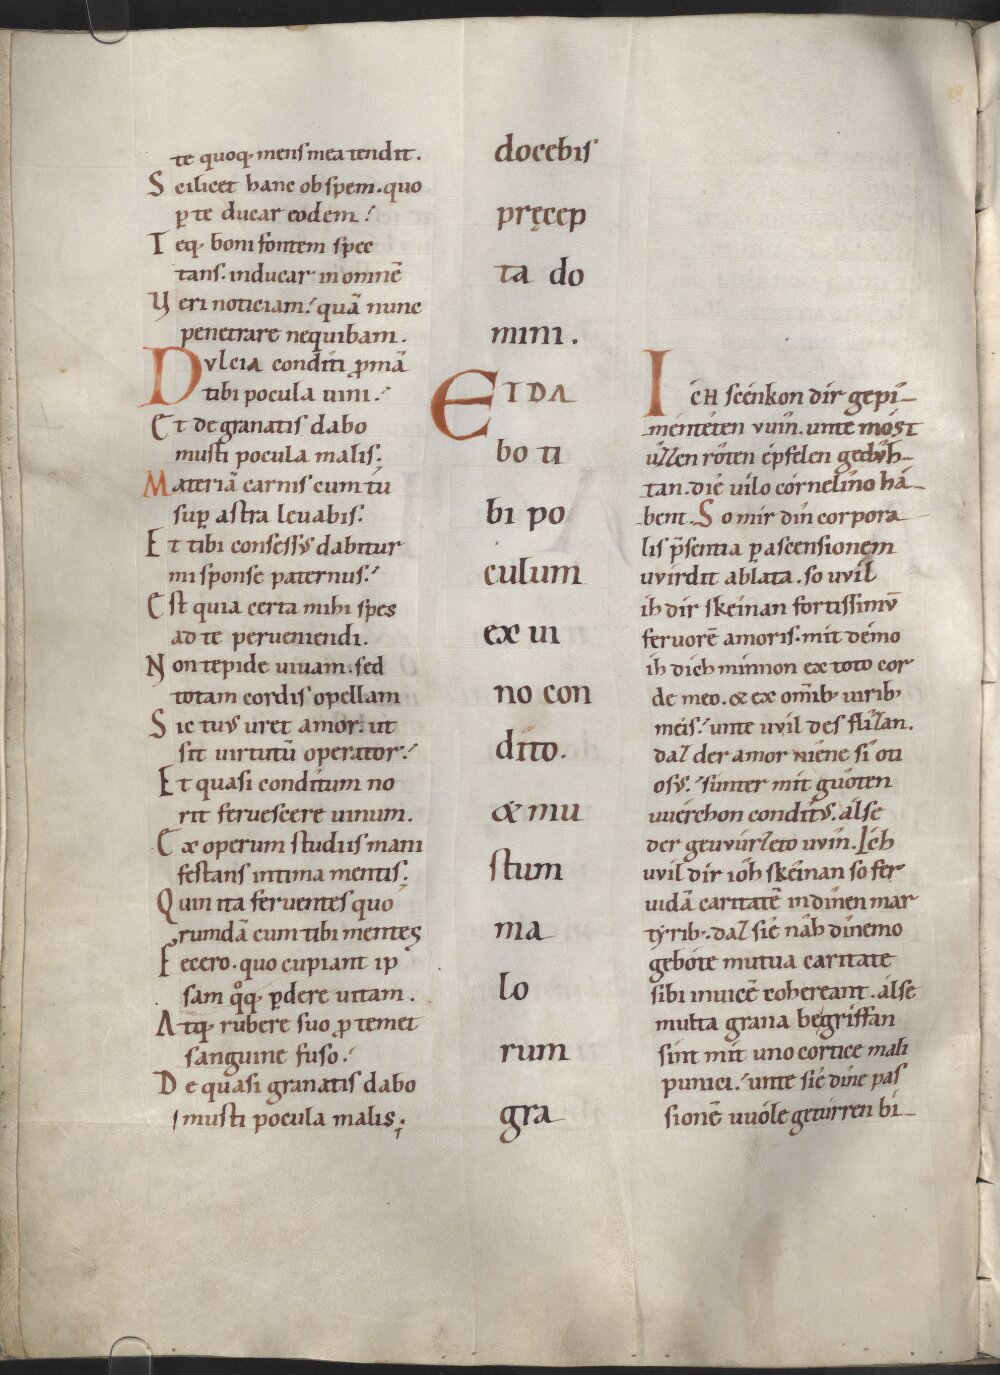 te quoq; mens mea tendit.
Scilicet hanc ob spem. quo
p̱ te ducar eodem.
Teq; boni fontem spec
tans. inducar in omnē
Veri noticiam. quā nunc
penetrare nequibam.
Dvlcia conditi p̱mā
tibi pocula uini.
Et de granatis dabo
musti pocula malis.
Materiā carnis cum tú
sup̱ astra leuabis.
Et tibi consessus dabitur
mi sponse paternus.
Est quia certa mihi spes
ad te perueniendi.
Non tepide uiuam. sed
totam cordis opellam
Sic tuus uret amor. ut
sit uirtutū operator.
Et quasi conditum no
rit feruescere uinum.
Ex operum studiis mani
festans intima mentis.
Quin ita feruentes quo
rumdā cum tibi mentes
Fecero. quo cupiant ip
sam qͦq; p̱dere uitam.
Atq; rubere suo p̱ temet
sanguine fuso.
De quasi granatis dabo
musti pocula malis;
docebis
pręcep
ta do
mini.
Et da
bo ti
bi po
culum
ex ui
no con
dito.
& mu
stum
ma
lo
rum
gra
Ich scénkon dir gepi-
ménteten vuîn. unte móst
ûzzen rôten épfelen gedûh-
tan. die vilo córnelîno há-
bent. So mir dîn corpora
lis p̄sentia p̱ ascensionem
uvirdit ablata. so uvil
ih dir skeînan fortissimū
feruorē amoris. mit démo
ih dich minnon ex toto cor
de meo. & ex omīb; uirib;
meis. unte uvil des flîzzan.
daz der amor niêne sî oti
osus. súnter mit guôten
uuérchon conditus. álse
der geuvúrzeto uvîn. Ich
uvil dir ióh skeînan so fer
uidā caritatē in dînen mar
tyrib;. daz sie nâh dînemo
gebóte mutua caritate
sibi inuicē cohereant. álse
multa grana begríffan
sint mit uno cortice mali
punici. unte sie dîne pas
sionē uuóle getúrren bi-